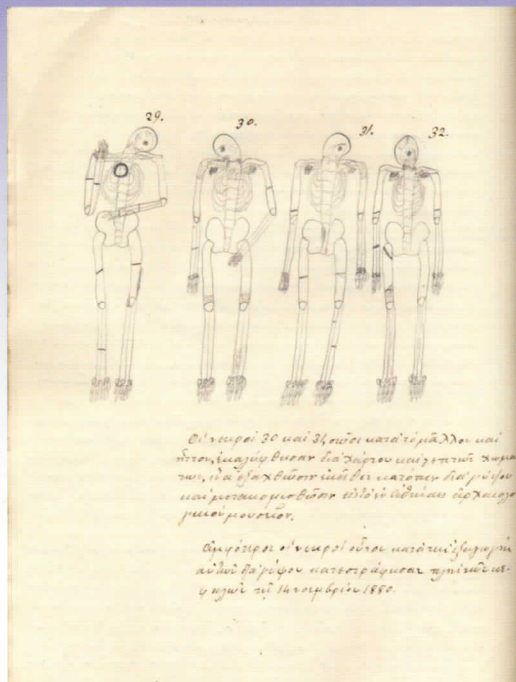 29.
30.
31.
32.
Οἱ νεκροί 30 καί 31, σῶοι κατά τό μᾶλλον καί
ἧττον, ἐκαλύφθησαν διά χάρτου καί λεπτῶν χωμά
των, ἵνα ἐξαχθῶσιν ἐκεῖθεν κατόπιν διά γύψου
καί μετακομισθῶσιν εἰς τό ἐν Ἀθήναις ἀρχαιολο
γικόν μουσεῖον.
Ἀμφότεροι οἱ νεκροί οὗτοι κατά τήν ἐξαγωγήν
αὐτῶν διά γύψου κατεστράφησαν πλήν τῶν κε-
φαλῶν τῇ 14 νοεμβρίου 1880.